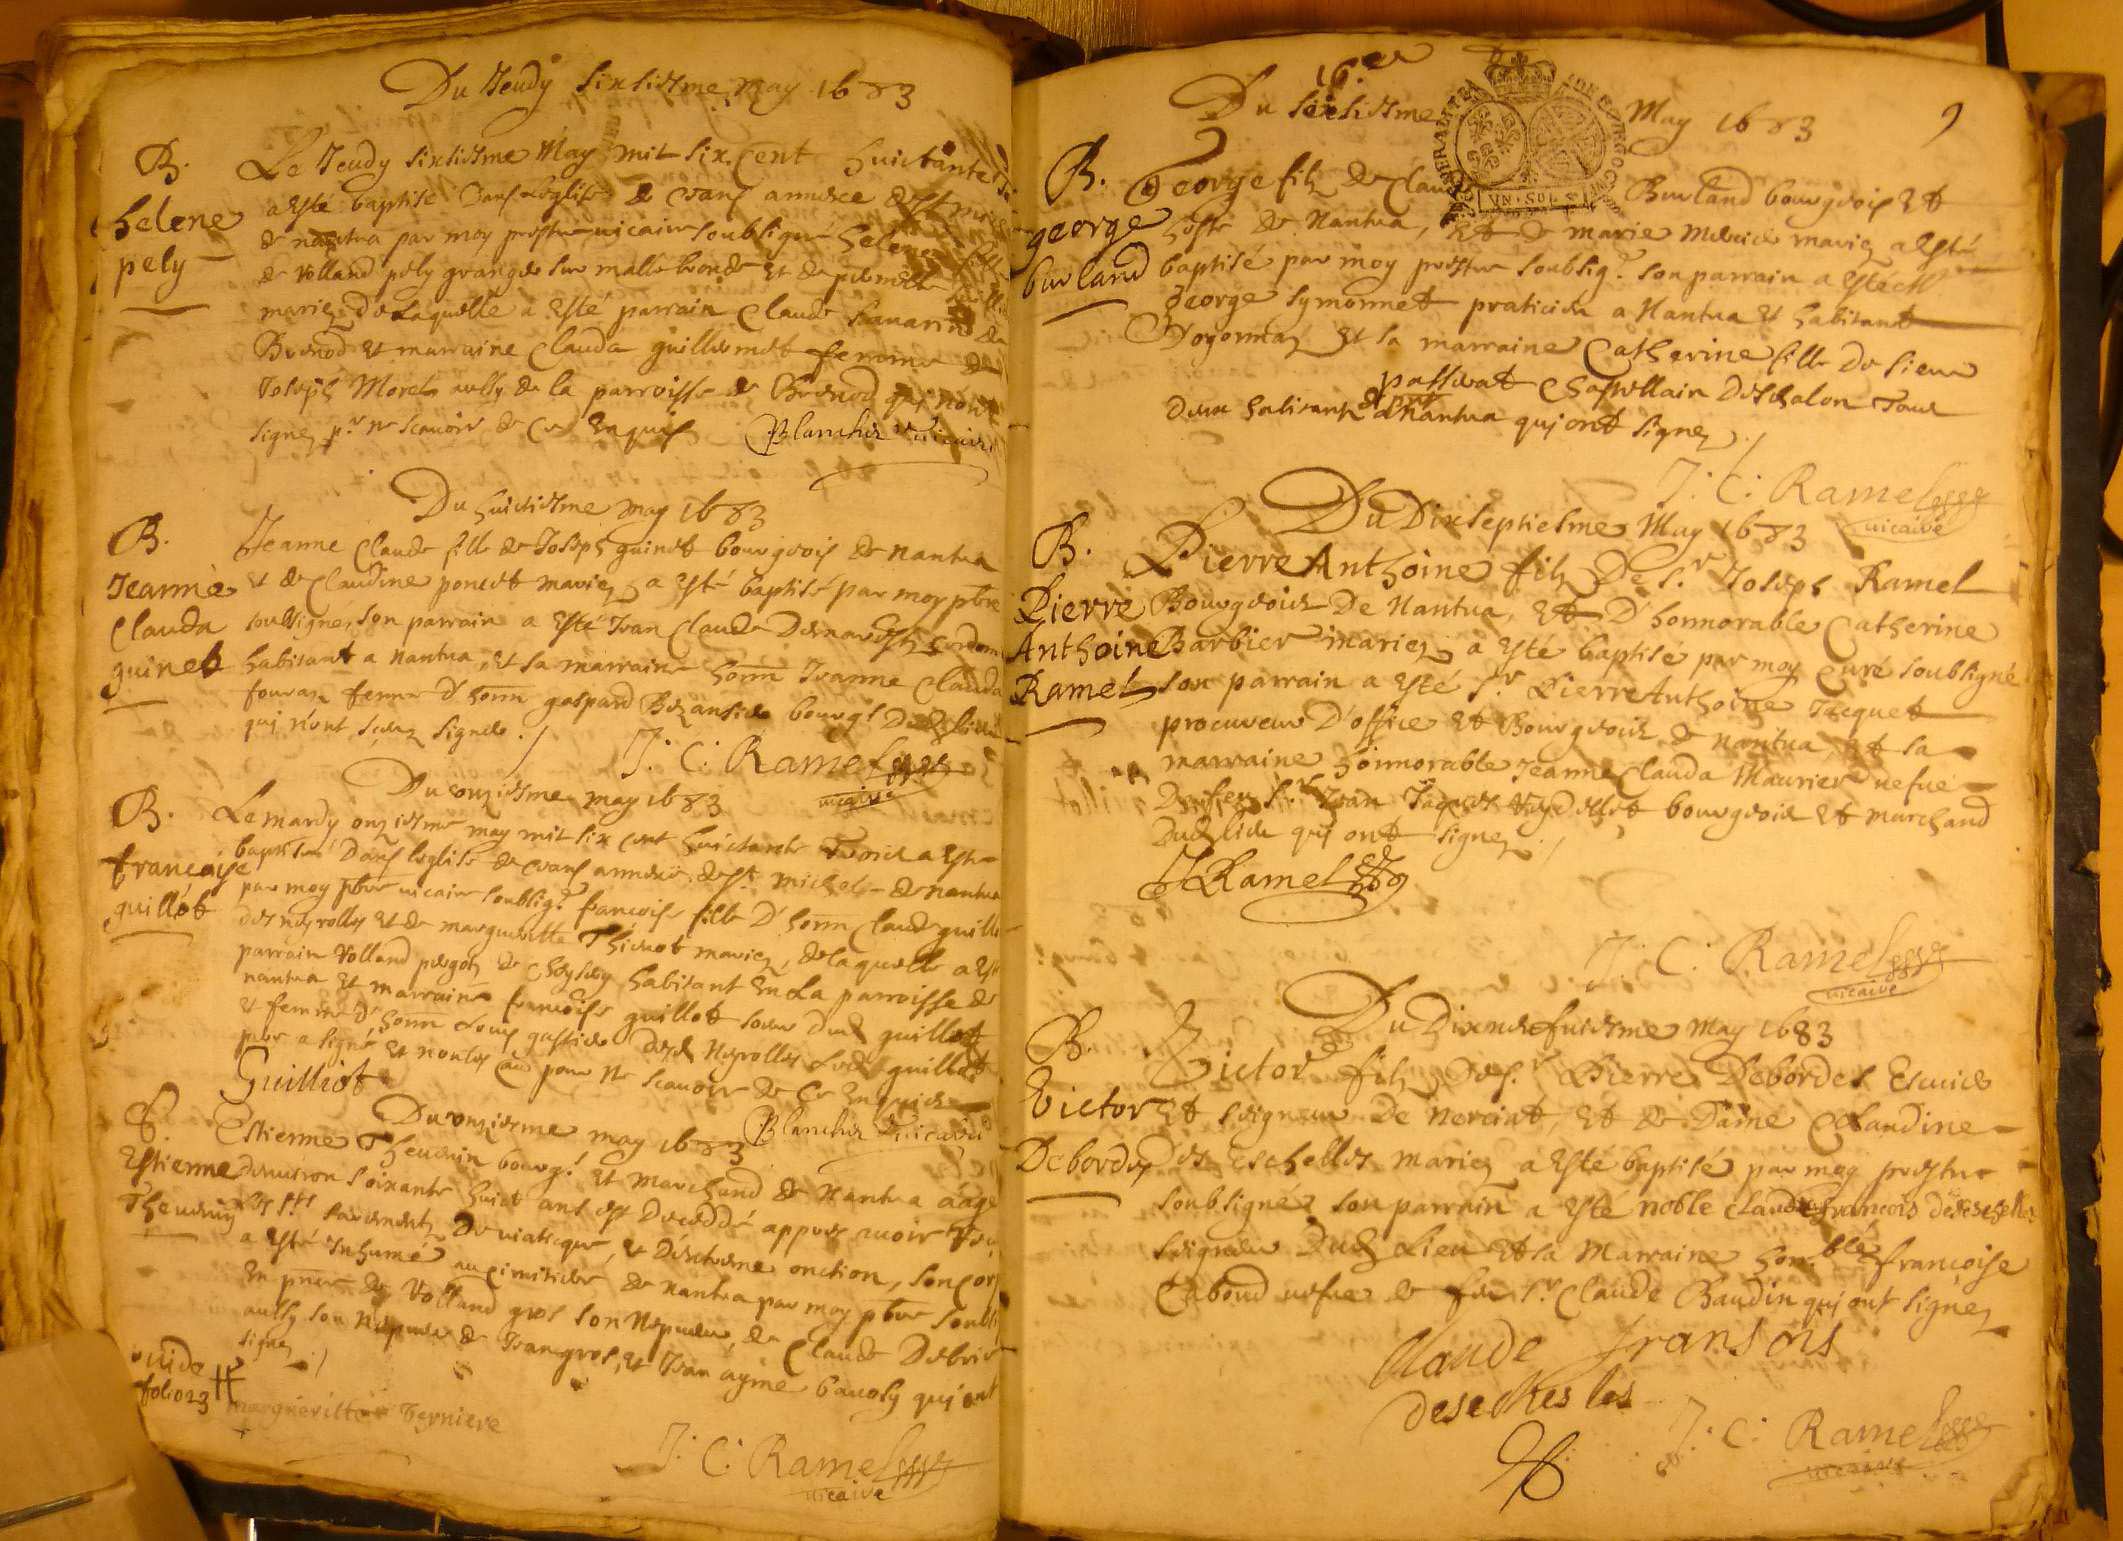 Du Jeudy sixsiesme may 1683
B.
helene
pely
Le Jeudy sixsiesme May mil six Cent huictante
a esté baptisé dans Leglise de annexe de St
de nantua par moy prestre vicaire soubsigné helene
de Rolland pely granger sur malle et de
mariez de Laquelle a Esté parrain Claude de
Brenod et marraine Clauda guillermet femme de
Joseph Morel aussy de la parroisse de Brenod qui n'ont
signez pr ne scavoir de ce Enquis Blanchet vicaire
Du huictiesme may 1683
B.
Jeanne
Clauda
guinet
Jeanne Claude fille de Joseph guinet bourgeois de nantua
et de Claudine poncet mariez a esté baptisé par moy pbre
soubsigné, son parrain a Esté Jean Claude
habitant a nantua, et sa marraine honn Jeanne Clauda
femme d'honn gaspard bourg. Dud. lieu
qui n'ont sceu signer ./
J. C. Ramel
vicaire
Du onziesme may 1683
B.
francoise
guillot
Le mardy onziesme may mil six cent huictante Trois a Esté
baptisée Dans leglise de annexe de St. michel de nantua
par moy pbre vicaire soubsig.é francoise fille D'honn Claude guillot
des neyrolles et de margueritte mariez, de laquelle a Esté
parrain Rolland de habitant En La parroisse de
nantua et marraine francoise guillot soeur dud. guillot
et femme d'honn Louys des Neyrolles Led. guillot
pere a signé et non les pour ne scavoir de Ce Enquis
Guilliot
Blanchet vicaire
Du onziesme may 1683
S.
Estienne
Thevenin
Estienne Thevenin bourg.s et Marchand de Nantua aagé
d'environ soixante huict ans est Decedé appres avoir
les sts sacements Du viatique, et D'extreme onction, son corps
a esté Inhumé au Cimitiere de nantua par moy pbre
En pnce de Rolland gros son Nepveu, de Claude
aussy son Nepveu de Jean gros, et Jean ayme qui ont
signez ./
vide
folio 23
margueritte
J. C. Ramel
vicaire
16.er
Du sixsiesme May 1683
9
GENERALITE DE BOURGOGNE
VN·SOL
B.
george
burland
George filz de Claude Burland bourgeois Et
hoste de Nantua, Et de marie mercier mariez a Esté
baptisé par moy prestre soubsig.é son parrain a Esté
george symonnet praticien a Nantua et habitant
Et sa marraine Catherine fille de sieur
passerat Chastellain Tous
deux habitants de Nantua qui ont signez ./
J. C. Ramel
vicaire
Du Dixseptiesme May 1683
B.
Pierre
Anthoine
Ramel
Pierre Anthoine filz De s.r Joseph Ramel
Bourgeois De Nantua, Et D'honnorable Catherine
Barbier mariez, a esté baptisé par moy Curé soubsigné
son parrain a esté s.r Pierre Anthoine Jacquet
procureur D'office et Bourgeois de nantua, et sa
marraine honnorable Jeanne Clauda Maurier vefve
De feu s.r Jean Jacques bourgeois et marchand
Dud. lieu qui ont signez ./
J Ramel
J. C. Ramel
vicaire
Du Dixneufviesme may 1683
B.
Victor
Debordes
Victor filz De s.r Pierre Debordes Escuier
Et seigneur De nerciat, Et de Dame Claudine
des Eschelles mariez a Esté baptisé par moy prestre
soubsigné son parrain a esté noble Claude francois des eschelles
seigneur Dud. Lieu et sa Marraine hon.ble francoise
Cabond vefve de feu s.r Claude Baudin qui ont signez
Claude fransois
deseckes les
J. C. Ramel
vicaire